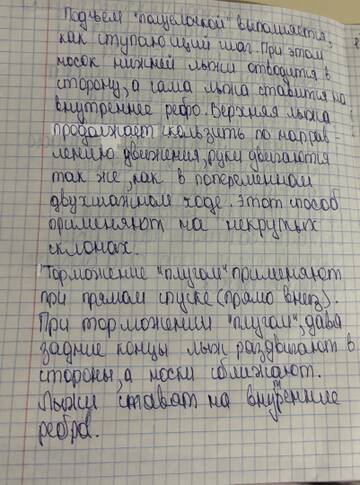 Подъём "полуёлочкой" выполняется,
как ступающий шаг. При этом
носок нижней лыжи отводится в
сторону, а сама лыжа ставится на
внутреннее ребро. Верхняя лыжа
продолжает скользить по направ-
лению движения, руки двигаются
так же, как в попеременном
двухшажном ходе. Этот способ
применяют на некрутых
склонах.
Торможение "плугом" применяют
при прямом спуске (прямо вниз).
При торможении "плугом", дава
задние концы лыж раздвигают в
стороны, а носки сближают.
Лыжи ставят на внутренние
ребра.